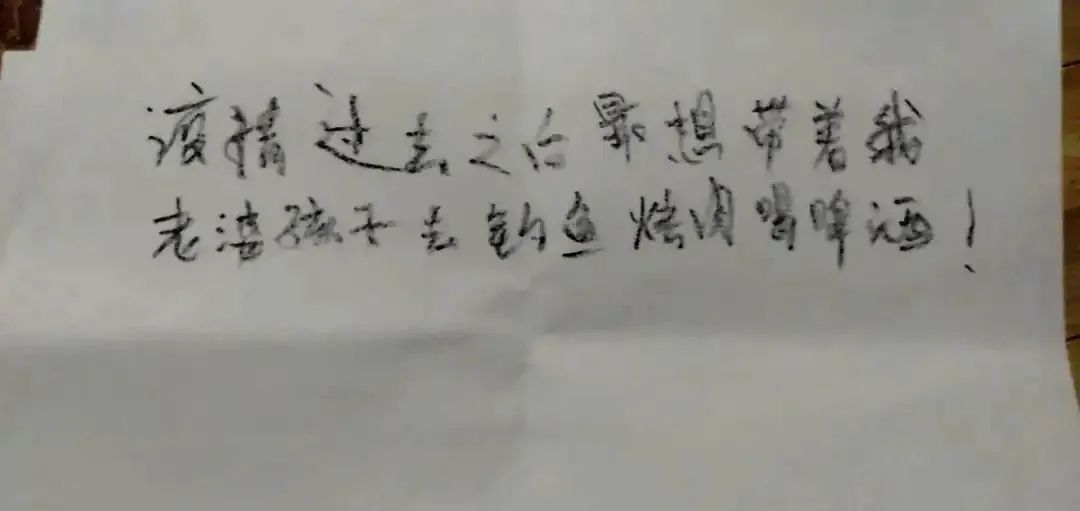 疫情过去之后最想带着我
老婆孩子去钓鱼烤肉喝啤酒!